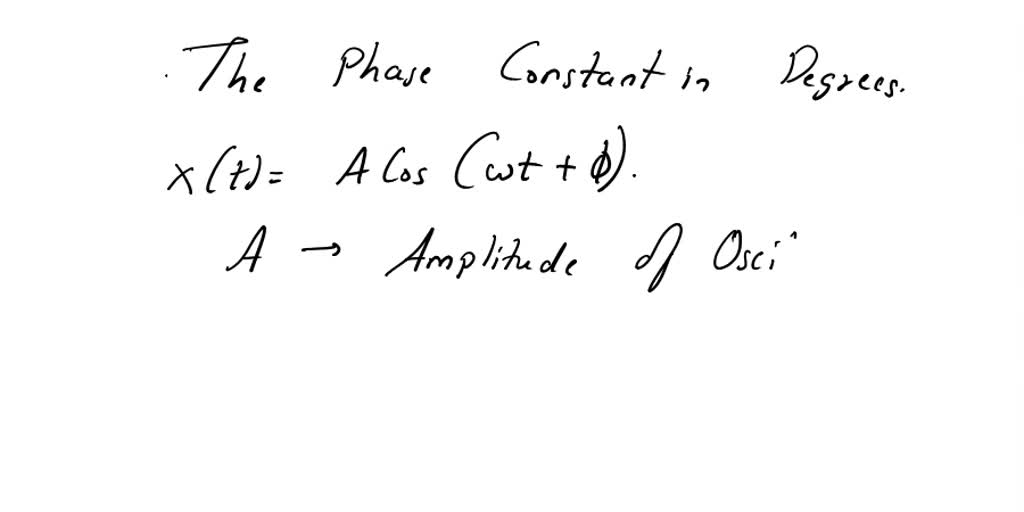 The Phase Constant in Degrees.
x(t) = A Cos (ωt + ϕ).
A → Amplitude of Osci